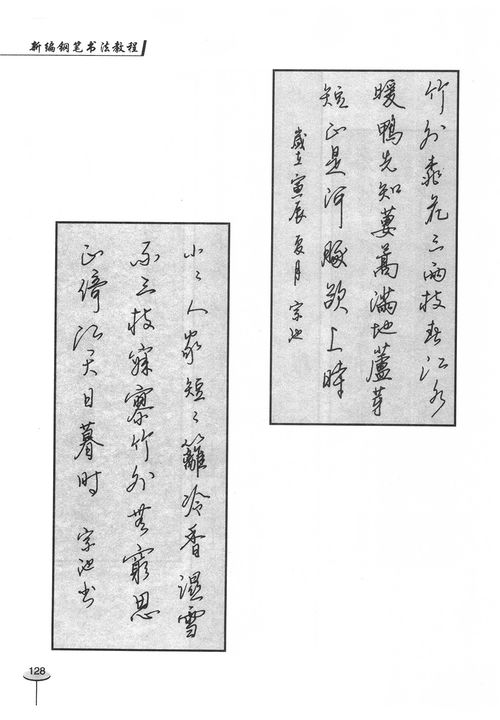 新编钢笔书法教程
竹外桃花三两枝春江水
暖鴨先知蔞蒿滿地蘆芽
短正是河豚欲上時
歲在寅辰夏月 宗池
小〻人家短〻籬冷香湿雪
两三枝寂寥竹外無窮思
正倚江天日暮时 宗池书
128